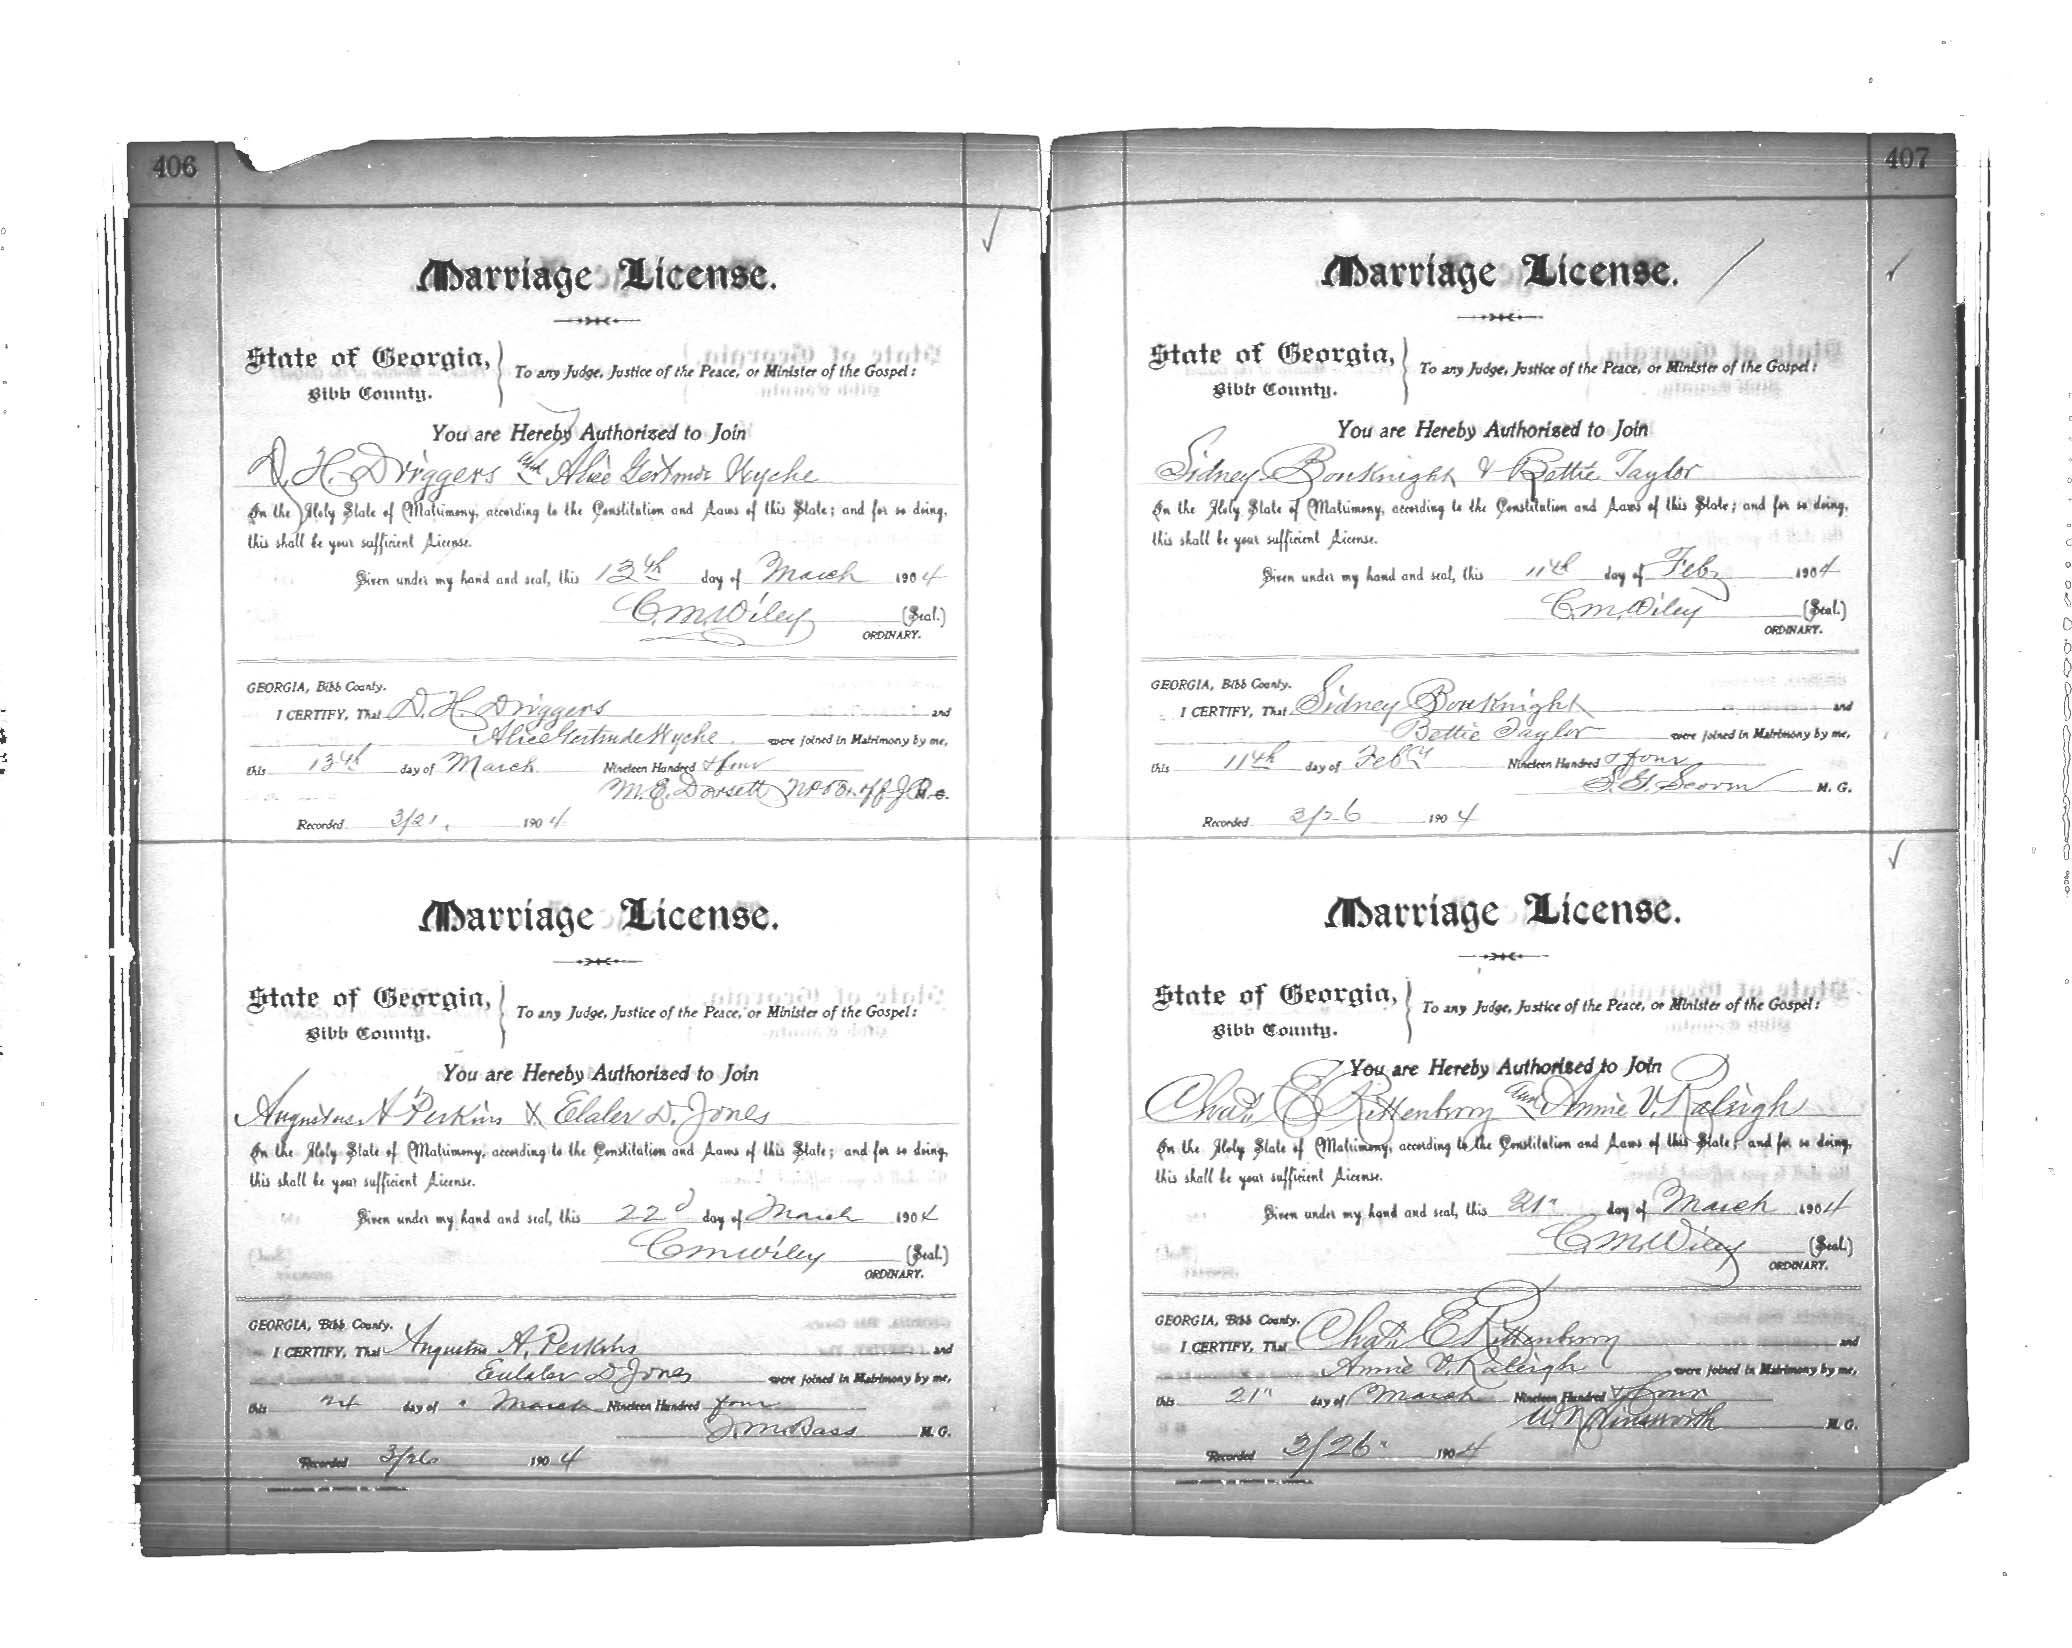 406
Marriage License.
State of Georgia,
Bibb County.
To any Judge, Justice of the Peace, or Minister of the Gospel:
You are Hereby Authorized to Join
D. H. Driggers and Alice Gertrude Wyche
In the Holy State of Matrimony, according to the Constitution and Laws of this State; and for so doing,
this shall be your sufficient License.
Given under my hand and seal, this 13th day of March 1904
C. M. Wiley (Seal.)
ORDINARY.
GEORGIA, Bibb County.
I CERTIFY, That D. H. Driggers and
Alice Gertrude Wyche were joined in Matrimony by me,
this 13th day of March Nineteen Hundred & four
M. E. Dorsett J.P. M. G.
Recorded 3/21 1904
Marriage License.
State of Georgia,
Bibb County.
To any Judge, Justice of the Peace, or Minister of the Gospel:
You are Hereby Authorized to Join
Augustus A Perkins & Elaler D. Jones
In the Holy State of Matrimony, according to the Constitution and Laws of this State; and for so doing,
this shall be your sufficient License.
Given under my hand and seal, this 22d day of March 1904
C M Wiley (Seal.)
ORDINARY.
GEORGIA, Bibb County.
I CERTIFY, That Augustus A. Perkins and
Eulaler D Jones were joined in Matrimony by me,
this 24 day of March Nineteen Hundred four
J. M. Bass M. G.
Recorded 3/26 1904
407
Marriage License.
State of Georgia,
Bibb County.
To any Judge, Justice of the Peace, or Minister of the Gospel:
You are Hereby Authorized to Join
Sidney Bouknight & Bettie Taylor
In the Holy State of Matrimony, according to the Constitution and Laws of this State; and for so doing,
this shall be your sufficient License.
Given under my hand and seal, this 11th day of Feby 1904
C. M. Wiley (Seal.)
ORDINARY.
GEORGIA, Bibb County.
I CERTIFY, That Sidney Bouknight and
Bettie Taylor were joined in Matrimony by me,
this 11th day of Feby Nineteen Hundred & four
M. G.
Recorded 3/26 1904
Marriage License.
State of Georgia,
Bibb County.
To any Judge, Justice of the Peace, or Minister of the Gospel:
You are Hereby Authorized to Join
Chas E Rittenberry and Annie V. Raleigh
In the Holy State of Matrimony, according to the Constitution and Laws of this State; and for so doing,
this shall be your sufficient License.
Given under my hand and seal, this 21" day of March 1904
C. M. Wiley (Seal.)
ORDINARY.
GEORGIA, Bibb County.
I CERTIFY, That Chas E Rittenberry and
Annie V. Raleigh were joined in Matrimony by me,
this 21" day of March Nineteen Hundred & four
W. N. Ainsworth M. G.
Recorded 3/26" 1904